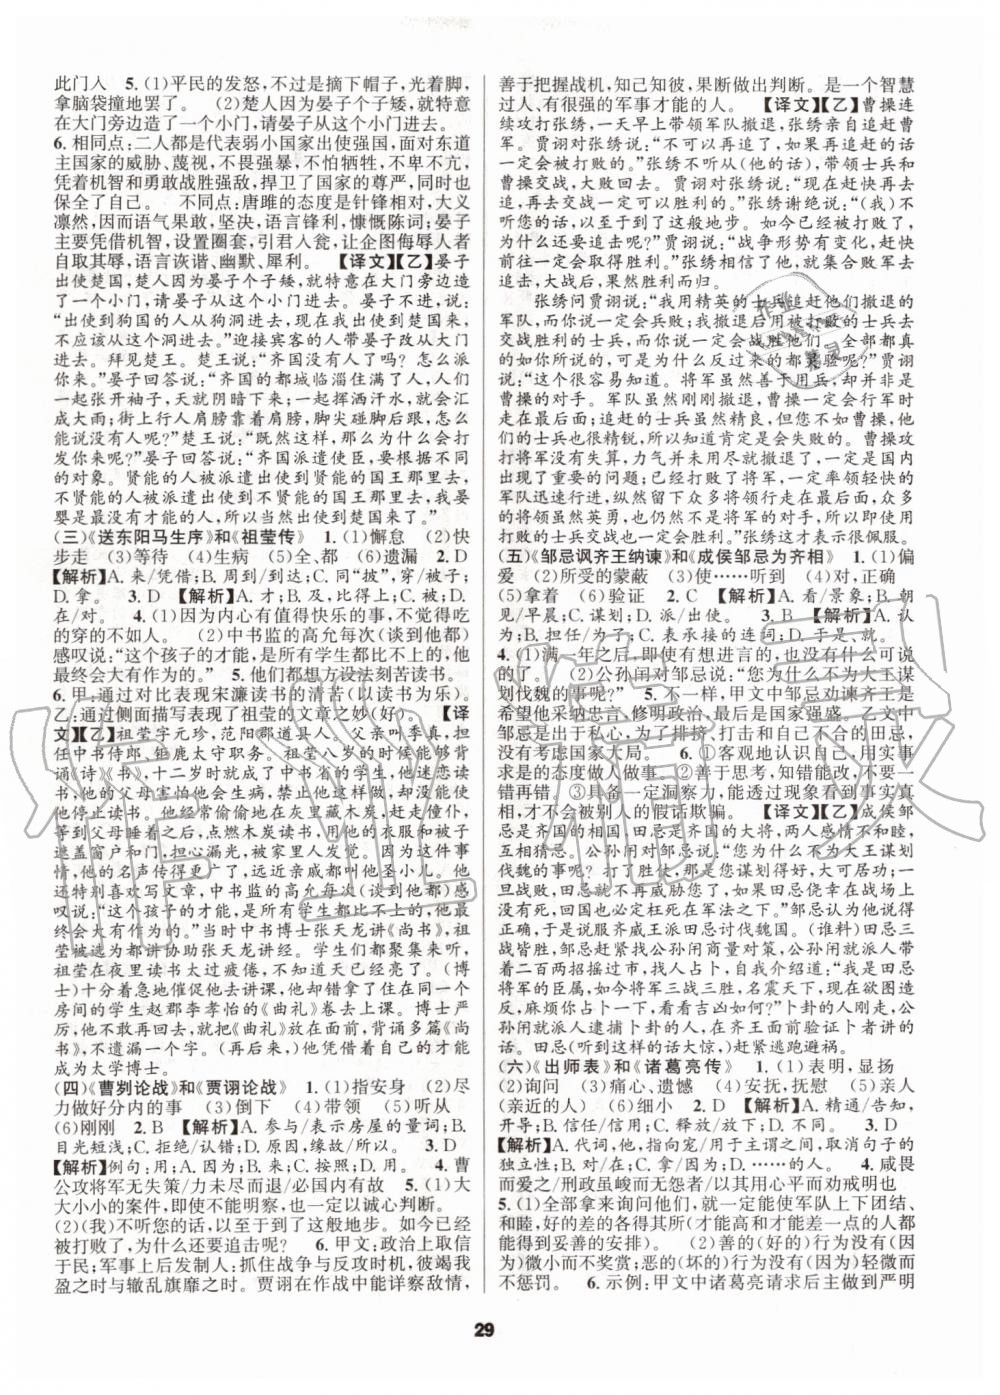 此门入　5.(1)平民的发怒,不过是摘下帽子,光着脚,
拿脑袋撞地罢了。　(2)楚人因为晏子个子矮,就特意
在大门旁边造了一个小门,请晏子从这个小门进去。
6.相同点:二人都是代表弱小国家出使强国,面对东道
主国家的威胁、蔑视,不畏强权,不怕牺牲,不卑不亢,
凭着机智和勇敢战胜强敌,捍卫了国家的尊严,同时也
保全了自己。　不同点:唐雎的态度是针锋相对,大义
凛然,因而语气果敢,坚决,语言锋利,慷慨陈词;晏子
主要凭借机智,设置圈套,引君入瓮,让企图侮辱人者
自取其辱,语言诙谐、幽默、犀利。　【译文】【乙】晏子
出使楚国,楚人因为晏子个子矮,就特意在大门旁边造
了一个小门,请晏子从小门进去。晏子不进,说:
“出使到狗国的人从狗洞进去,现在我出使到楚国来,
不应该从这个洞进去。”迎接宾客的人带晏子改从大门
进去。　拜见楚王。楚王说:“齐国没有人了吗?怎么派
你来。”晏子回答说:“齐国的都城临淄住满了人,人们
一起张开袖子,天就阴暗下来;一起挥洒汗水,就会汇
成大雨;街上行人肩膀靠着肩膀,脚尖碰脚后跟,怎么
能说没有人呢?”楚王说:“既然这样,那么为什么会打
发你来呢?”晏子回答说:“齐国派遣使臣,要根据不同
的对象。贤能的人被派遣出使到贤能的国王那里去,
不贤能的人被派遣出使到不贤能的国王那里去。我晏
婴是最没有才能的人,所以当然出使到楚国来了。”
(三)《送东阳马生序》和《祖莹传》　1.(1)懈怠　(2)快
步走　(3)等待　(4)生病　(5)全、都　(6)遗漏　2.D
【解析】A.来/凭借;B.周到/到达;C.同“披”,穿/被;D.
在/拿。　3.D　【解析】A.才/才;B.及,比得上;C.被;D.
在/对。　4.(1)因为内心有值得快乐的事,不觉得吃
的穿的不如人。　(2)中书监的高允每次(谈到他都)
感叹说:“这个孩子的才能,是所有学生都比不上的,他
最终会大有作为的。”　5.他们都想方设法刻苦读书。
6.甲:通过对比表现宋濂读书的清苦(以读书为乐)。
乙:通过侧面描写表现了祖莹的文章之妙(好)。　【译
文】【乙】祖莹字元珍,范阳郡道县人。父亲叫季真,担
任中书侍郎、钜鹿太守职务。祖莹八岁的时候能够背
诵《诗》《书》,十二岁时就成了中书省的学生,他迷恋读
书,他的父母害怕他会生病,禁止他读书,却没能使他
停止读书。他经常偷偷地在灰里藏木炭,赶走僮仆,
等到父母睡着之后,点燃木炭读书,用他的衣服和被子
遮盖窗户和门,担心漏光,被家人发现。因为这件事
情,他的名声传得更广了,远近亲戚都叫他圣小儿。他
还特别喜欢写文章,中书监的高允每次(谈到他都)感
叹说:“这个孩子的才能,所有学生都比不上的,他最
终会大有作为的。”当时中书博士张天龙讲《尚书》,
祖莹被选为都讲协助张天龙讲经。学生们都聚集来听,
祖莹在夜里读书太过疲倦,不知道天已经亮了。(博
士)十分着急地催促他去讲课,他就错拿了住在同一个
房间的学生赵郡李孝怡的《曲礼》卷去上课。博士严
厉,他不敢再回去,就把《曲礼》放在面前,背诵多篇《尚
书》,没有遗漏一个字。(再后来,)他凭着自己的才能
成为太学博士。
(四)《曹刿论战》和《贾诩论战》　1.(1)指安身　(2)尽
力做好分内的事　(3)倒下　(4)带领　(5)听从
(6)刚刚　2.B　【解析】A.参与/表示房屋的量词;B.
目光短浅;C.拒绝/认错;D.原因,缘故/所以。　3.D
【解析】例句:用;A.来;B.来;C.按照;D.用。　4.曹
公攻将军无失策/力未尽而退/必国内有故　5.(1)大
大小小的案件,即使不能明察,也一定以诚心判断。
(2)(我)不听您的话,以至于到了这般地步。如今已经
被打败了,为什么还要追击呢?　6.甲文:政治上取信
于民;军事上后发制人:抓住战争与反攻时机,彼竭我
盈之时与辙乱旗靡之时。贾诩在作战中能详察敌情,
善于把握战机,知己知彼,果断做出判断。是一个智慧
过人,有很强的军事才能的人。　【译文】【乙】曹操连
续攻打张绣,一天早上带领军队撤退,张绣亲自追赶曹
军。贾诩对张绣说:“不可以再追了,如果再追赶的话
一定会被打败的。”张绣不听从(他的话),带领士兵和
曹操交战,大败而回。贾诩对张绣说:“赶快再去
追,再去交战一定可以胜利的。”张绣谢绝说:“(我)不
听您的话,以至于到了这般地步。如今已经被打败了,
怎么还要追击呢?”贾诩说:“战争形势有变化,赶快
前往一定会胜利。”张绣相信了他,就集合败军去
追击,大战后,果然胜利而归。
　　张绣问贾诩说:“我用精英的士兵追赶他们撤退的
军队,而你说一定会兵败;我撤退用打败了的士兵去
交战胜利的士兵,而你说一定会战胜他们。全部都真
的如你所说的,可是为什么反过来的都灵验呢?”贾诩
说:“这个很容易知道。将军虽然善于用兵,却并非是
曹操的对手。军队虽然刚刚撤退,曹操一定会行军时
走在最后面;追赶的士兵虽然精良,但您不如曹操,他
们的士兵也很精锐,所以知道肯定是会失败的。曹操攻
打将军没有失算,力气并未用尽就撤退了,一定是国内
出现了重要的问题;已经打败了将军,一定率领轻快的
军队迅速行进,纵然留下众多将领行走在最后,众多
的将领虽然英勇,也仍然不是将军的对手,所以虽然用
打败的军队作战也一定会胜利。”张绣于是表示很佩服。
(五)《邹忌讽齐王纳谏》和《成侯邹忌为齐相》　1.(1)偏
爱　(2)所受的蒙蔽　(3)使……听到　(4)对,正确
(5)拿着　(6)验证　2.C　【解析】A.看/景象;B.朝
见/早晨;C.谋划;D.派/出使。　3.B　【解析】A.认
为;B.担任/为了;C.表承接的连词;D.于是、就。
4.(1)满一年之后,即使有想进言的,也没什么可说
的了。　(2)公孙闬对邹忌说:“您为什么不为大王谋
划伐魏的事呢?”　5.不一样,甲文中邹忌劝谏齐王是
希望他采纳忠言,修明政治,最后是国家强盛。乙文中
邹忌是出于私心,为了排挤、打击和自己不合的田忌,
没有考虑国家大局。　6.①客观地认识自己;用实事
求是的态度做人做事。②善于思考,知错能改,不一
错再错。③具备一定洞察力,能透过现象看到事实真
相,才不会被别人的假话欺骗。　【译文】【乙】成侯邹
忌是齐国的相国,田忌是齐国的大将,两人感情不和睦,
互相猜忌。公孙闬对邹忌说:“您为什么不为大王谋划
伐魏的事呢?打了胜仗,那是您谋划得好,大可居功;一
旦战败,田忌不再威胁您了,而且田忌侥幸在战场上
没有战死,回国也必定枉死在军法之下。”邹忌认为他说得
正确,于是说服齐威王派田忌讨伐魏国。(谁料)田忌三
战皆胜,邹忌赶紧找公孙闬商量对策。公孙闬就派人带
着二百两招摇过市,找人占卜,自我介绍道:“我是田忌
将军的臣属,如今将军三战三胜,名震天下,现在欲图造
反,麻烦你占卜一下,看看吉凶如何?”卜卦的人刚走,公
孙闬就派人逮捕卜卦的人,在齐王面前验证卜者讲的
话。田忌(听到这话大惊,)赶紧逃跑避祸。
(六)《出师表》和《诸葛亮传》　1.(1)表明,显扬
(2)询问　(3)痛心、遗憾　(4)安抚,抚慰　(5)亲人
(亲近的人)　(6)细小　2.D　【解析】A.精通/告知,
开导;B.信任/信用;C.释放/放下;D.不同。　3.D
【解析】A.代词,他,指向宠/用于主谓之间,取消句子的
独立性;B.对/在;C.表转折/来;D.……的人。　4.咸畏
而爱之/刑政虽峻而无怨者/以其用心平而劝戒明也
5.(1)全部拿来询问他们,就一定能使军队上下团结、
和睦,好的差的各得其所(才能高和才能差一点的人都
能得到妥善的安排)。　(2)善的(好的)行为没有(因
为)微小而不奖赏;恶的(坏的)行为没有(因为)轻微而
不惩罚。　6.示例:甲文中诸葛亮请求后主做到严明
29